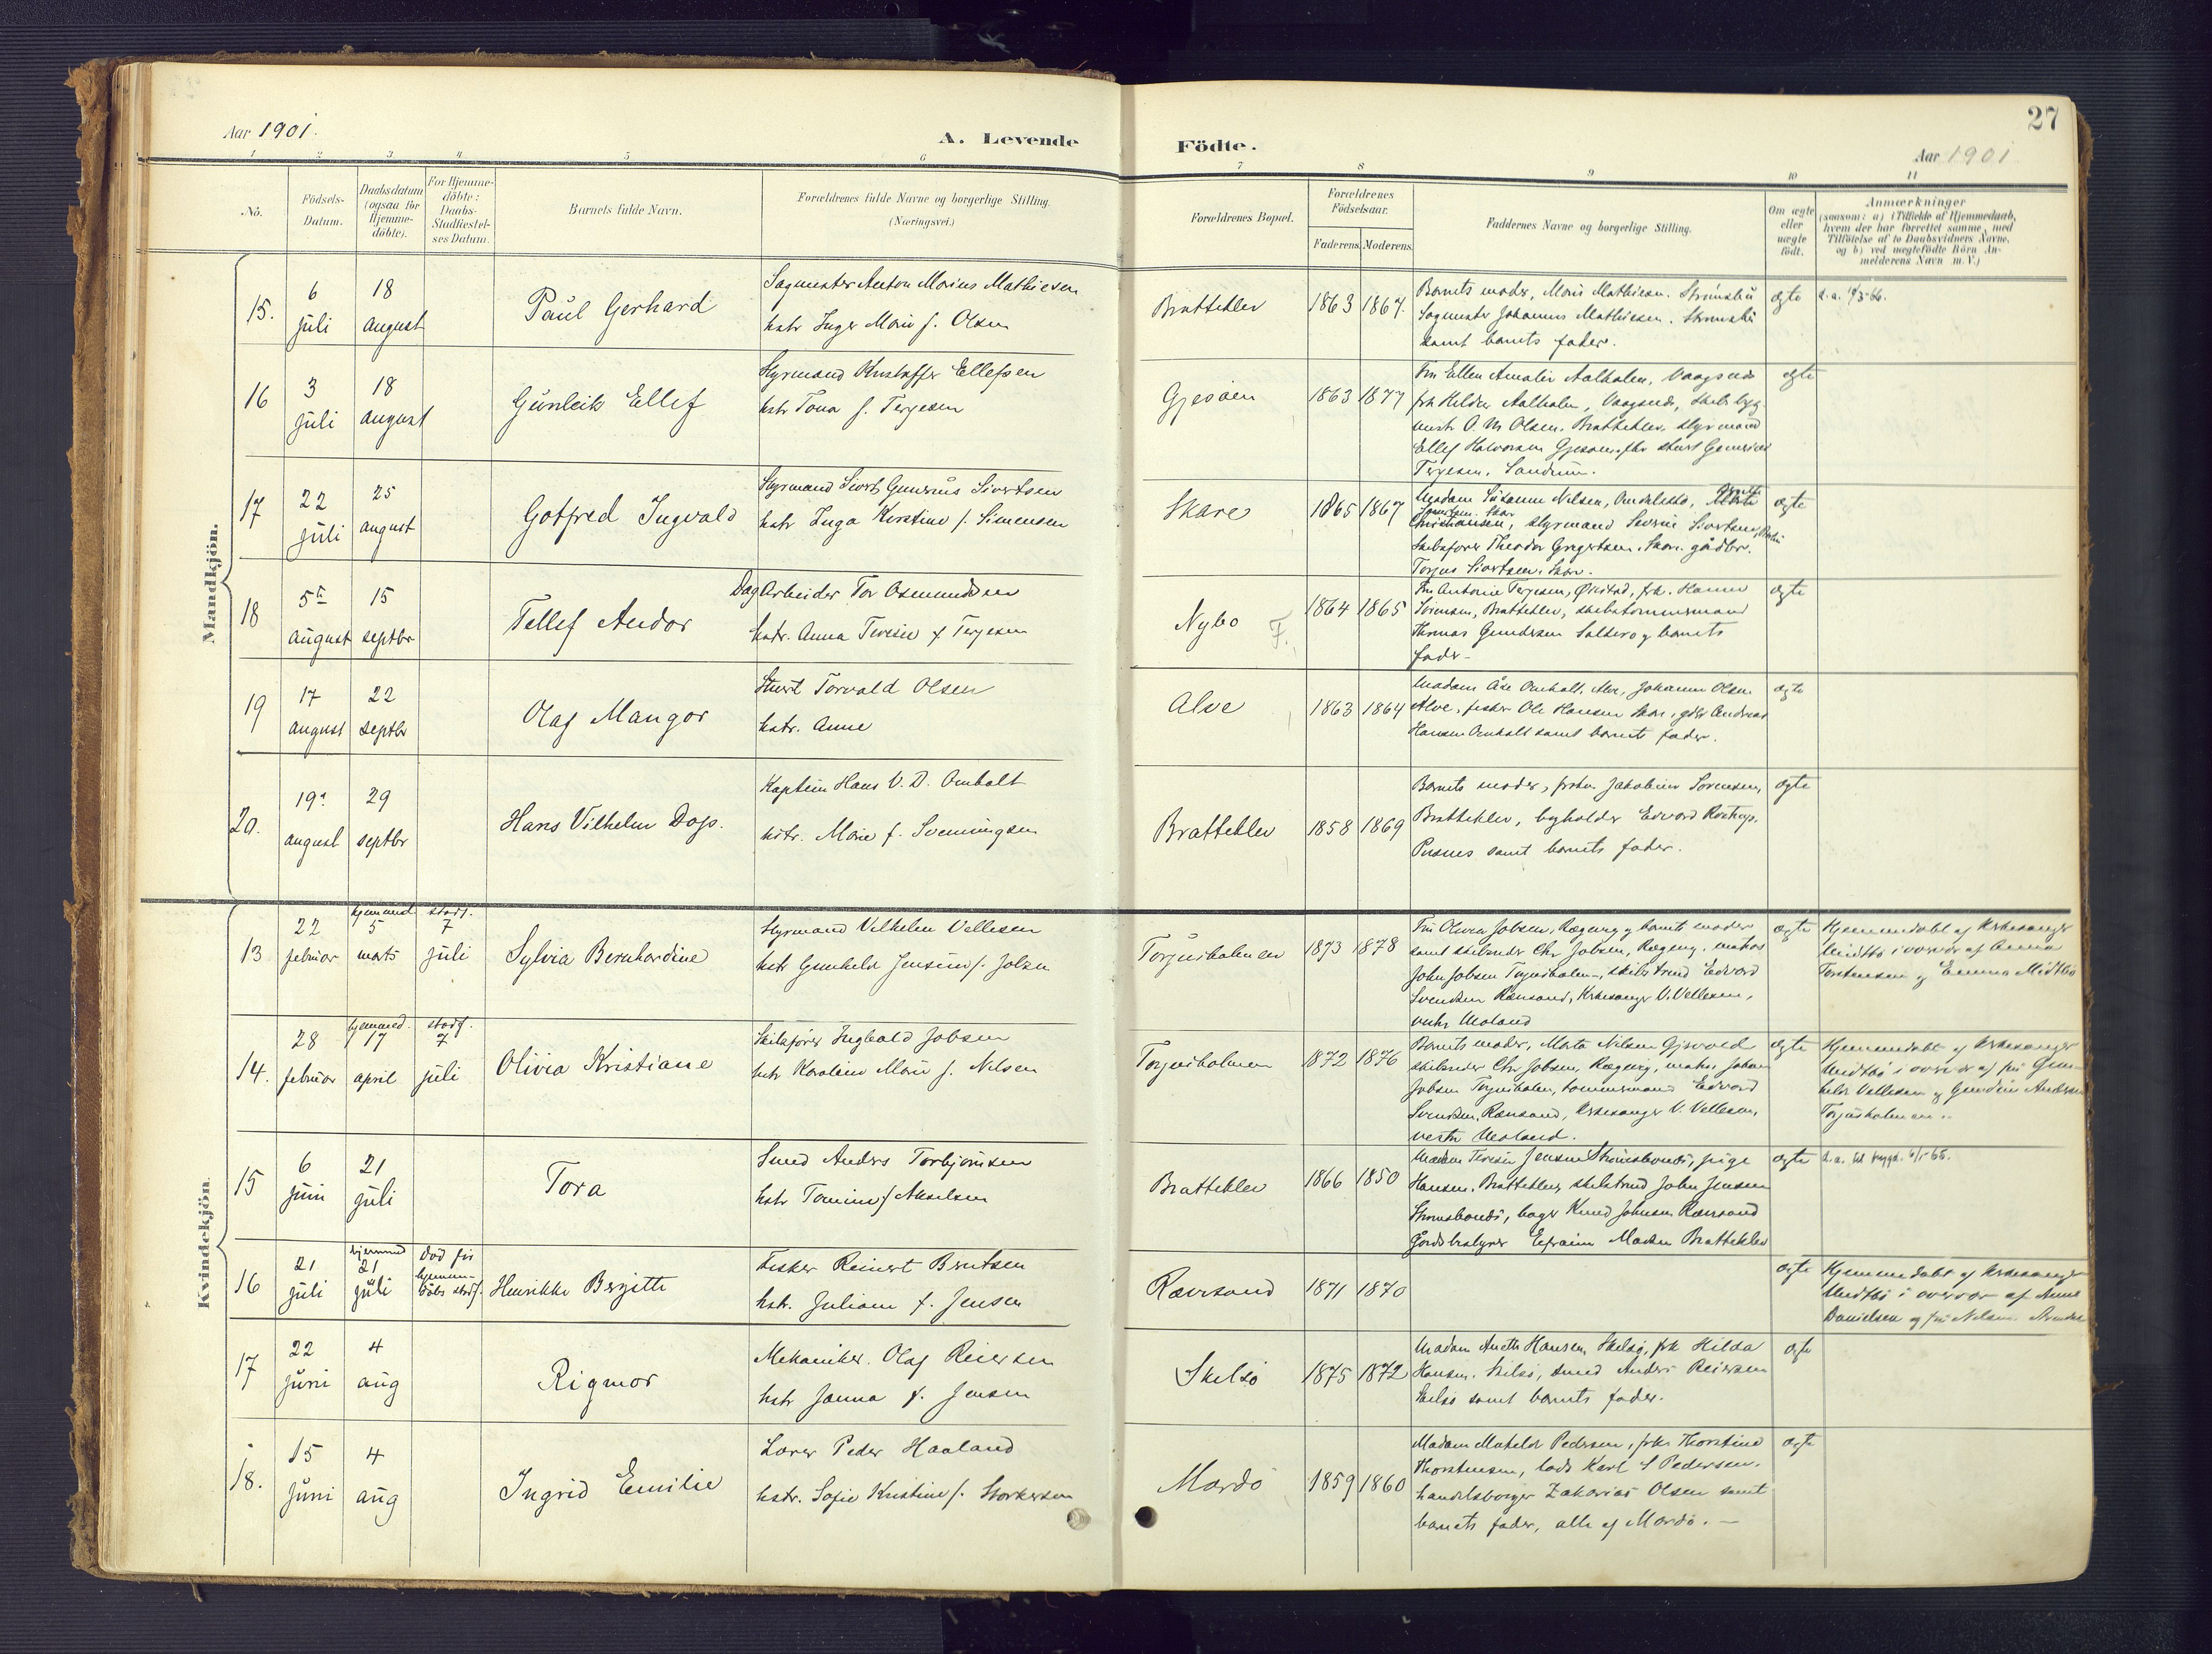 27
Aar 1901.
A. Levende
Födte.
Aar 1901
1 2 3 4 5 6 7 8 9 10 11
No.
Födsels-
Datum.
Daabsdatum
(ogsaa for
Hjemme-
döbte).
For Hjemme-
döbte:
Daabs-
Stadfæstel-
ses Datum.
Barnets fulde Navn.
Forældrenes fulde Navne og borgerlige Stilling.
(Næringsvei.)
Forældrenes Bopæl.
Forældrenes
Födselsaar.
Faderens
Moderens
Faddernes Navne og borgerlige Stilling.
Om ægte
eller
uægte
födt.
Anmærkninger
(saasom: a) i Tilfælde af Hjemmedaab,
hvem der har forrettet samme, med
Tilföielse af to Daabsvidners Navne,
og b) ved uægtefödte Börn An-
melderens Navn m. V.)
Mandkjön.
15.
6
juli
18
august
Paul Gerhard
Sagmester Anton Marius Mathiesen
hstr Inger Marie f. Olsen
Brattekler
1863
1867.
Barnets moder, Maris Mathiesen.
Sagmester Johannes Mathiesen.
samt barnets fader.
ægte
16
3
juli
18
august
Gunleik Ellef
Styrmand Kristoffer Ellefsen
hstr Tona f. Terjesen
Gjesøen
1863
1877
Fru Ellen Amalie Aalholm, Vaagsnes
frk Hilda Aalholm, Vaagsnes, Skibsbyg-
mestr O. M Olsen. Brattekler, styrmand
Ellef Halvorsen
Terjesen, Sandum.
ægte
17
22
juli
25
august
Gotfred Ingvald
Styrmand Sivert Gunerius Sivertsen
hstr Inga Kirstine f. Simensen
Skare
1865
1867
Madam Susanne Nilsen,
Christiansen, styrmand Severin Sivertsen,
Skibsfører Theodor Gregertsen. Skare. gårdbr.
Torjus Sivertsen. Skare.
ægte
18
5te
august
15
septbr
Tellef Andor
Dagarbeider Tor Osmundsen
hstr. Anna Teresie f. Terjesen
Nybo
F.
1864
1865
Fru Antonie Terjesen, frk. Hanna
Sörensen, Brattekler, skibstømmermand
Thomas Gundersen og barnets
fader-
ægte
19
17
august
22
septbr
Olaf Mangor
Stuert Torvald Olsen
hstr. Anne
Alve
1863
1864
Madam Åse Omholt, Alve, Johanne Olsen
Alve, fisker Ole Hansen Skare, gdbr Andreas
Hansen Omholt samt barnets fader.
ægte
20.
19de
august
29
septbr
Hans Vilhelm Dop.
Kaptein Hans V. D. Omholt
hstr. Marie f. Svenningsen
Brattekler
1858
1869
Barnets moder, frkn. Jakobine Sørensen,
Brattekler, Edvard
Pusnes samt barnets fader.
ægte
Kvindekjön
13
22
februar
hjemmed
5
marts
stadf.
7
juli
Sylvia Bernhardine
Styrmand Vilhelm Vellesen
hstr Gunhild Jensine f. Jobsen
Torjusholmen
1873
1878
Fru Olivia Jobsen, Rægevig og barnets moder
samt skibsreder Chr Jobsen, Rægevig,
John Jobsen Torjusholmen, skibstmd Edvard
Svendsen Rævesand, kirkesanger V. Vellesen,
vestr Moland
ægte
Hjemmedøbt af kirkesanger
Midtbø i overvær af Anna
Torstensen og Emma Midtbø
14.
28
februar
hjemmed.
17
april
stadf.
7
juli
Olivia Kristiane
Skibsfører Ingvald Jobsen
hstr Karoline Marie f. Nilsen
Torjusholmen
1872
1876
Barnets moder, Marta Nilsen
skibsreder Chr Jobsen, Rægevig, Johan
Jobsen Torjusholm, tømmermand Edvard
Svendsen, Rævesand, kirkesanger V. Vellesen,
vestr Moland.
ægte
Hjemmedøbt af kirkesanger
Midtbø i overvær af fru Gun-
hild Vellesen og Andersen
Torjusholmen.
15
6
juni
21
juli
Tora
Smed Anders Torbjørnsen
hstr Tomine f Akselsen
Brattekler
1866
1850
Madam Teresie Jensen Strømsbonæs, pige
Hansen. Brattekler, skibstmd John Jensen
Strømsbonæs, bager Knud Johnsen Rævesand
Gårdsbestyrer Efraim Madsen Brattekler
ægte
16
21
juli
hjemmed
21
juli
død før
hjemme-
døbs stadf.
Henrikke Bergitte
Fisker Reinert Berntsen
hstr. Juliane f. Jensen
Rævesand
1871
1870
ægte
Hjemmedøbt af kirkesanger
Midtbø i overvær af Anne
Danielsen og fru Nilsen
17
22
juni
4
aug
Rigmor
Mekaniker. Olaf Reiersen
hstr Janna f. Jensen
Skilsø
1875
1872
Madam Aneth Hansen Skilsø, frk Hilda
Hansen. Skilsø, smed Anders Reiersen
Skilsø samt barnets fader.
ægte
18.
15
juni
4
aug
Ingrid Emilie
Lærer Peder Haaland
hstr. Sofie Kristine f. Storkersen
Mærdø
1859
1860
Madam Mathilde Pedersen, frk. Thorstine
Thorstensen, lods Karl S Pedersen.
handelsborger Zakarias Olsen samt
barnets fader, alle af Mærdø. —
ægte